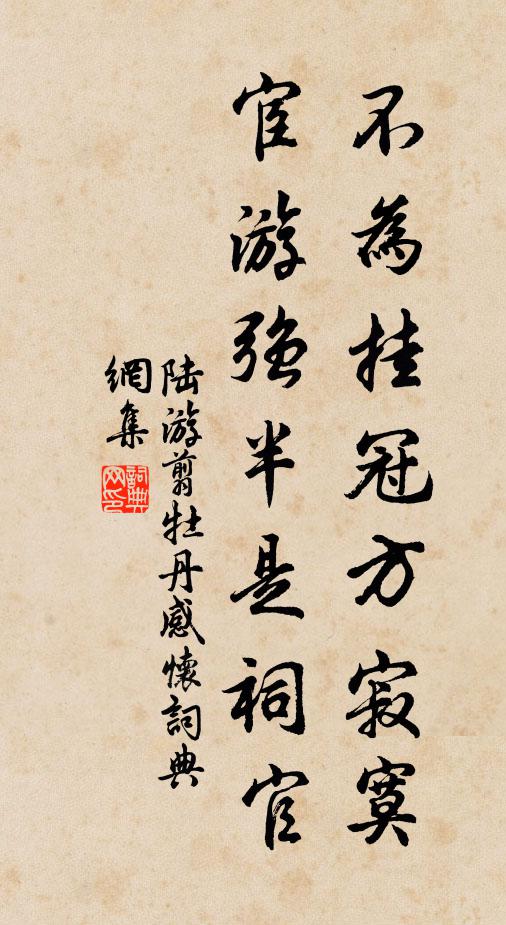 不為挂冠方寂寞
宦游強半是祠官
陆游剪牡丹感懷詞典
網集
詞典
网印